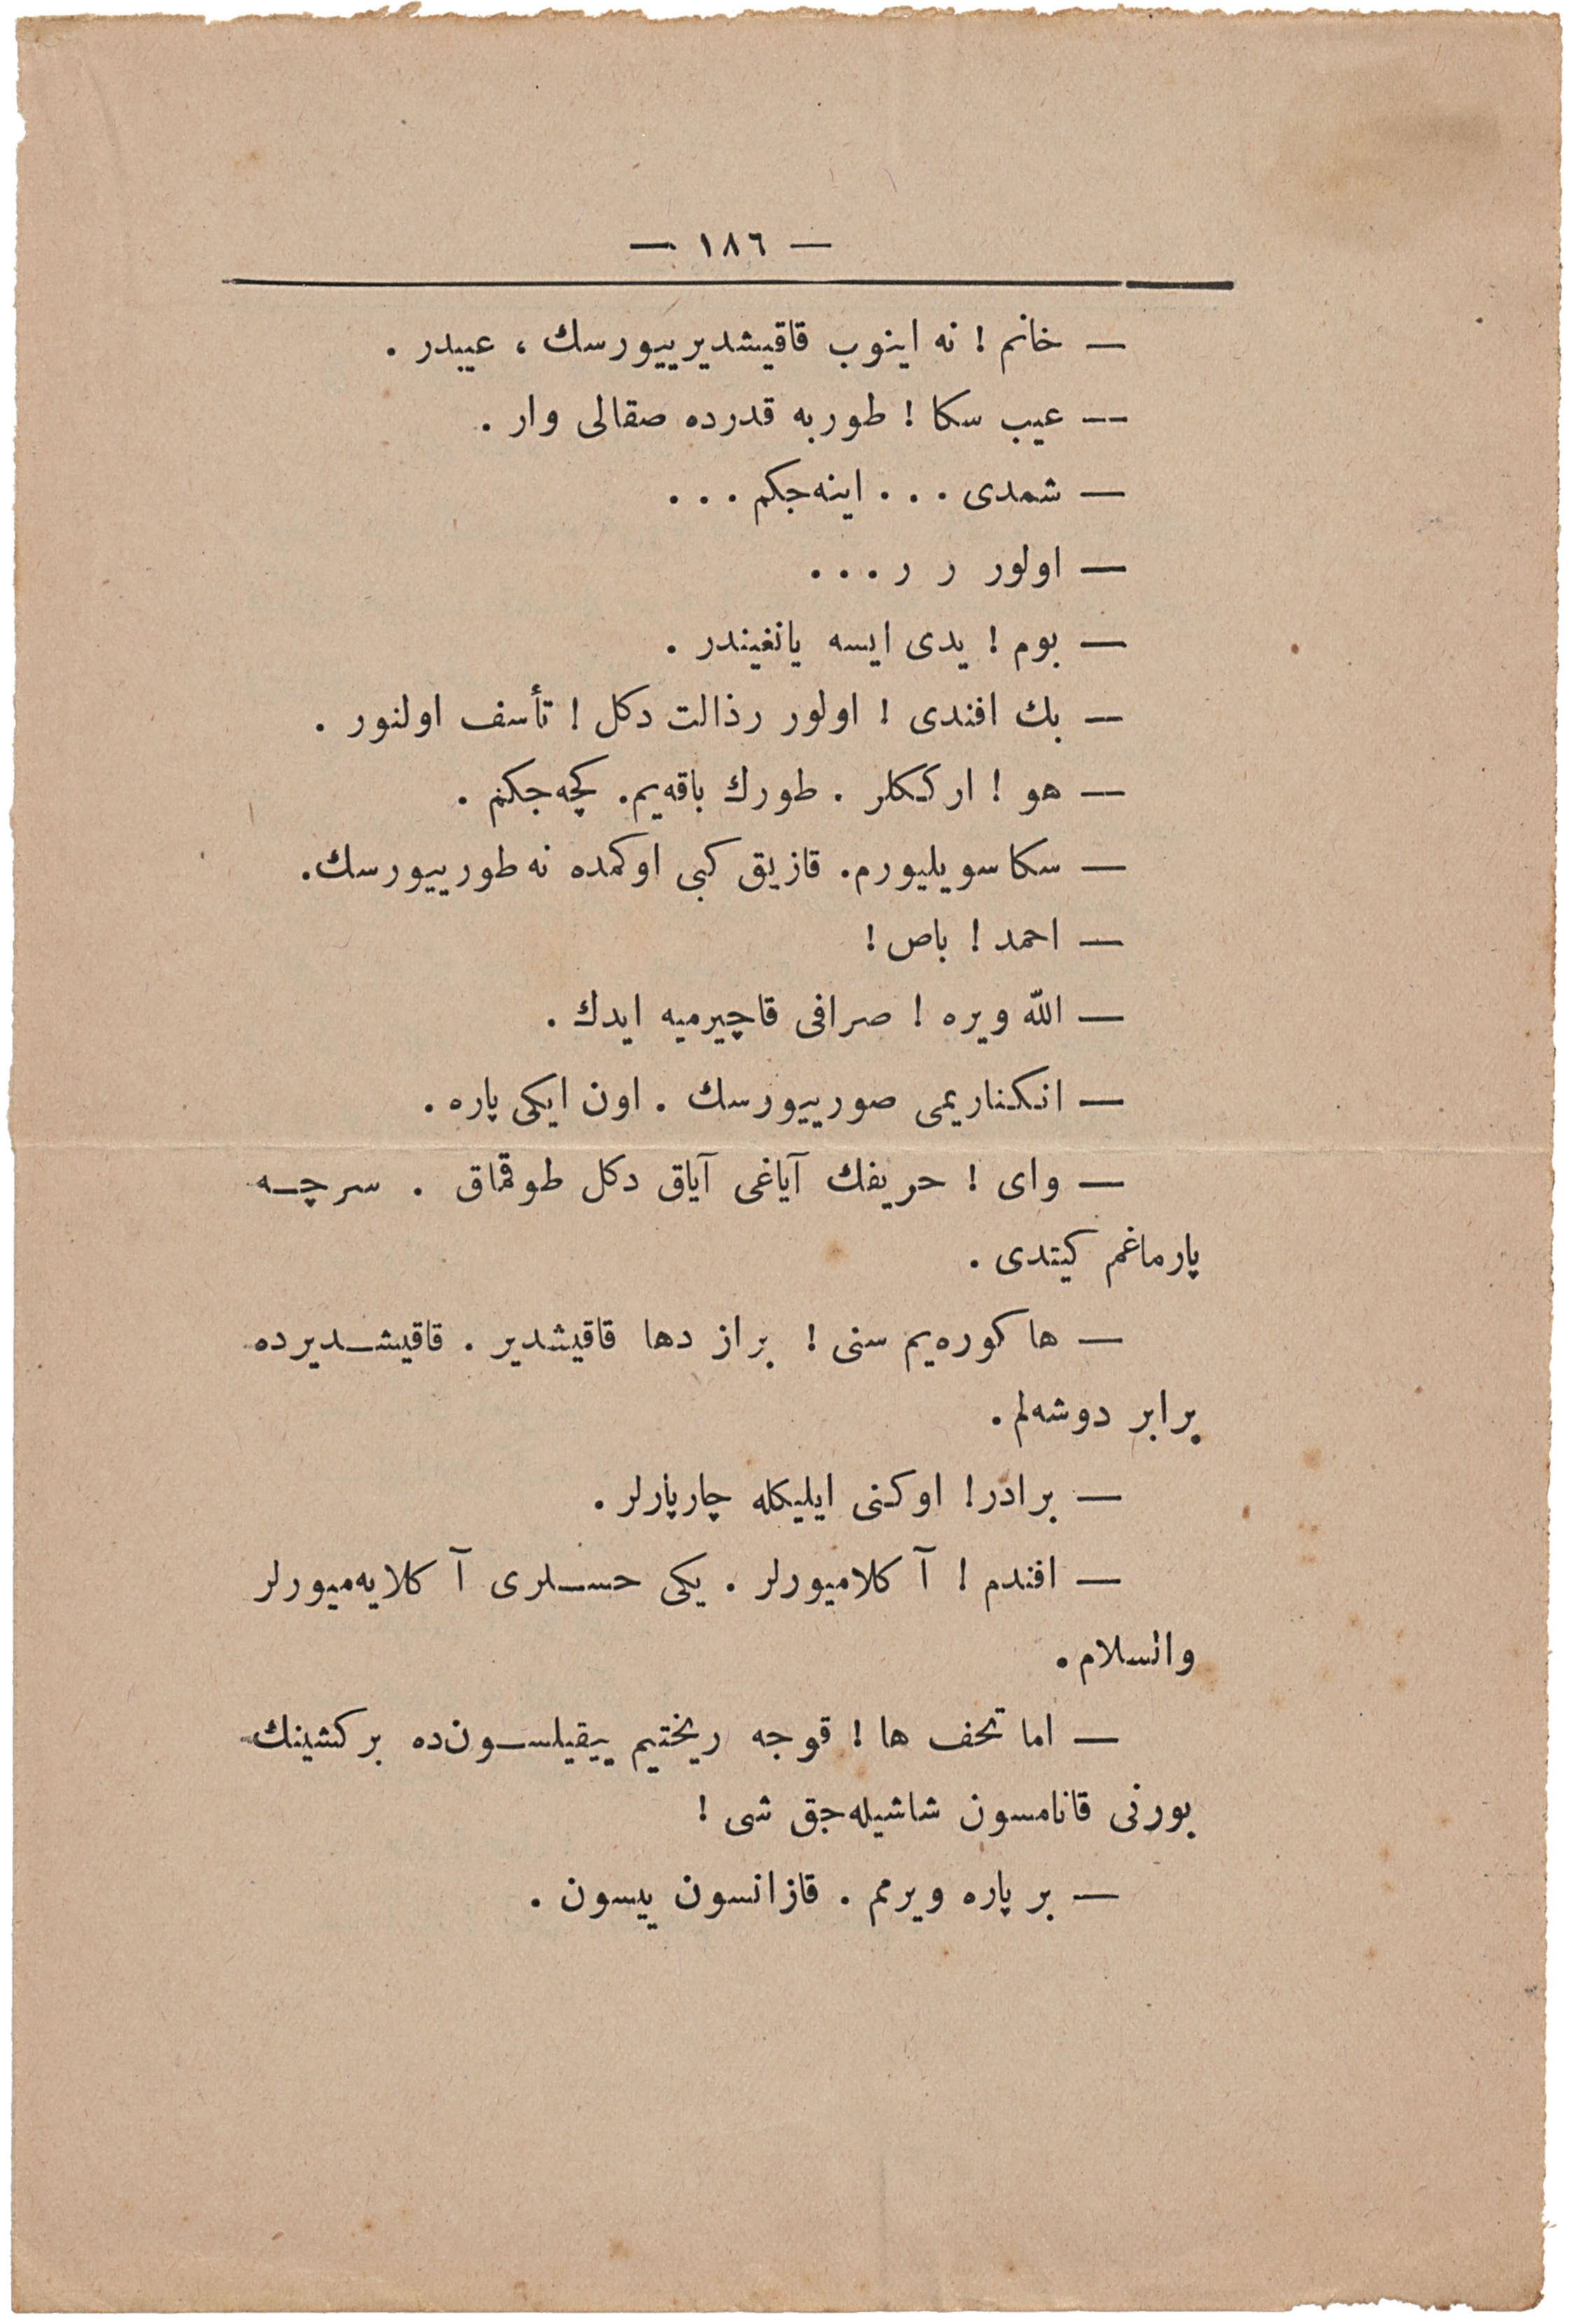 — ١٨٦ —
— خانم ! نه اینوب قاقیشدیرییورسك ، عیبدر .
— عیب سكا ! طوربه قدرده صقالی وار .
— شمدی . . . اینه‌جكم . . .
— اولور ر ر . . .
— بوم ! یدی ایسه یانغیندر .
— بك افندی ! اولور رذالت دكل ! تأسف اولنور .
— هو ! ارككلر . طورك باقه‌یم. كچه‌جكم .
— سكا سویلیورم. قازیق كبی اوكمده نه طورییورسك.
— احمد ! باص !
— الله ویره ! صرافی قاچیرمیه ایدك .
— انكناریمی صورییورسك . اون ایكی پاره .
— وای ! حریفك آیاغی آیاق دكل طوقماق . سرچه
پارماغم كیتدی .
— ها كوره‌یم سنی ! براز دها قاقیشدیر . قاقیشدیرده
برابر دوشه‌لم .
— برادر! اوكنی ایلیكله چارپارلر .
— افندم ! آ كلامیورلر . یكی حسلری آ كلایه‌میورلر
والسلام .
— اما تحف ها ! قوجه ریختیم ییقیلسون‌ده بر كشینك
بورنی قانامسون شاشیله‌جق شی !
— بر پاره ویرمم . قازانسون ییسون .